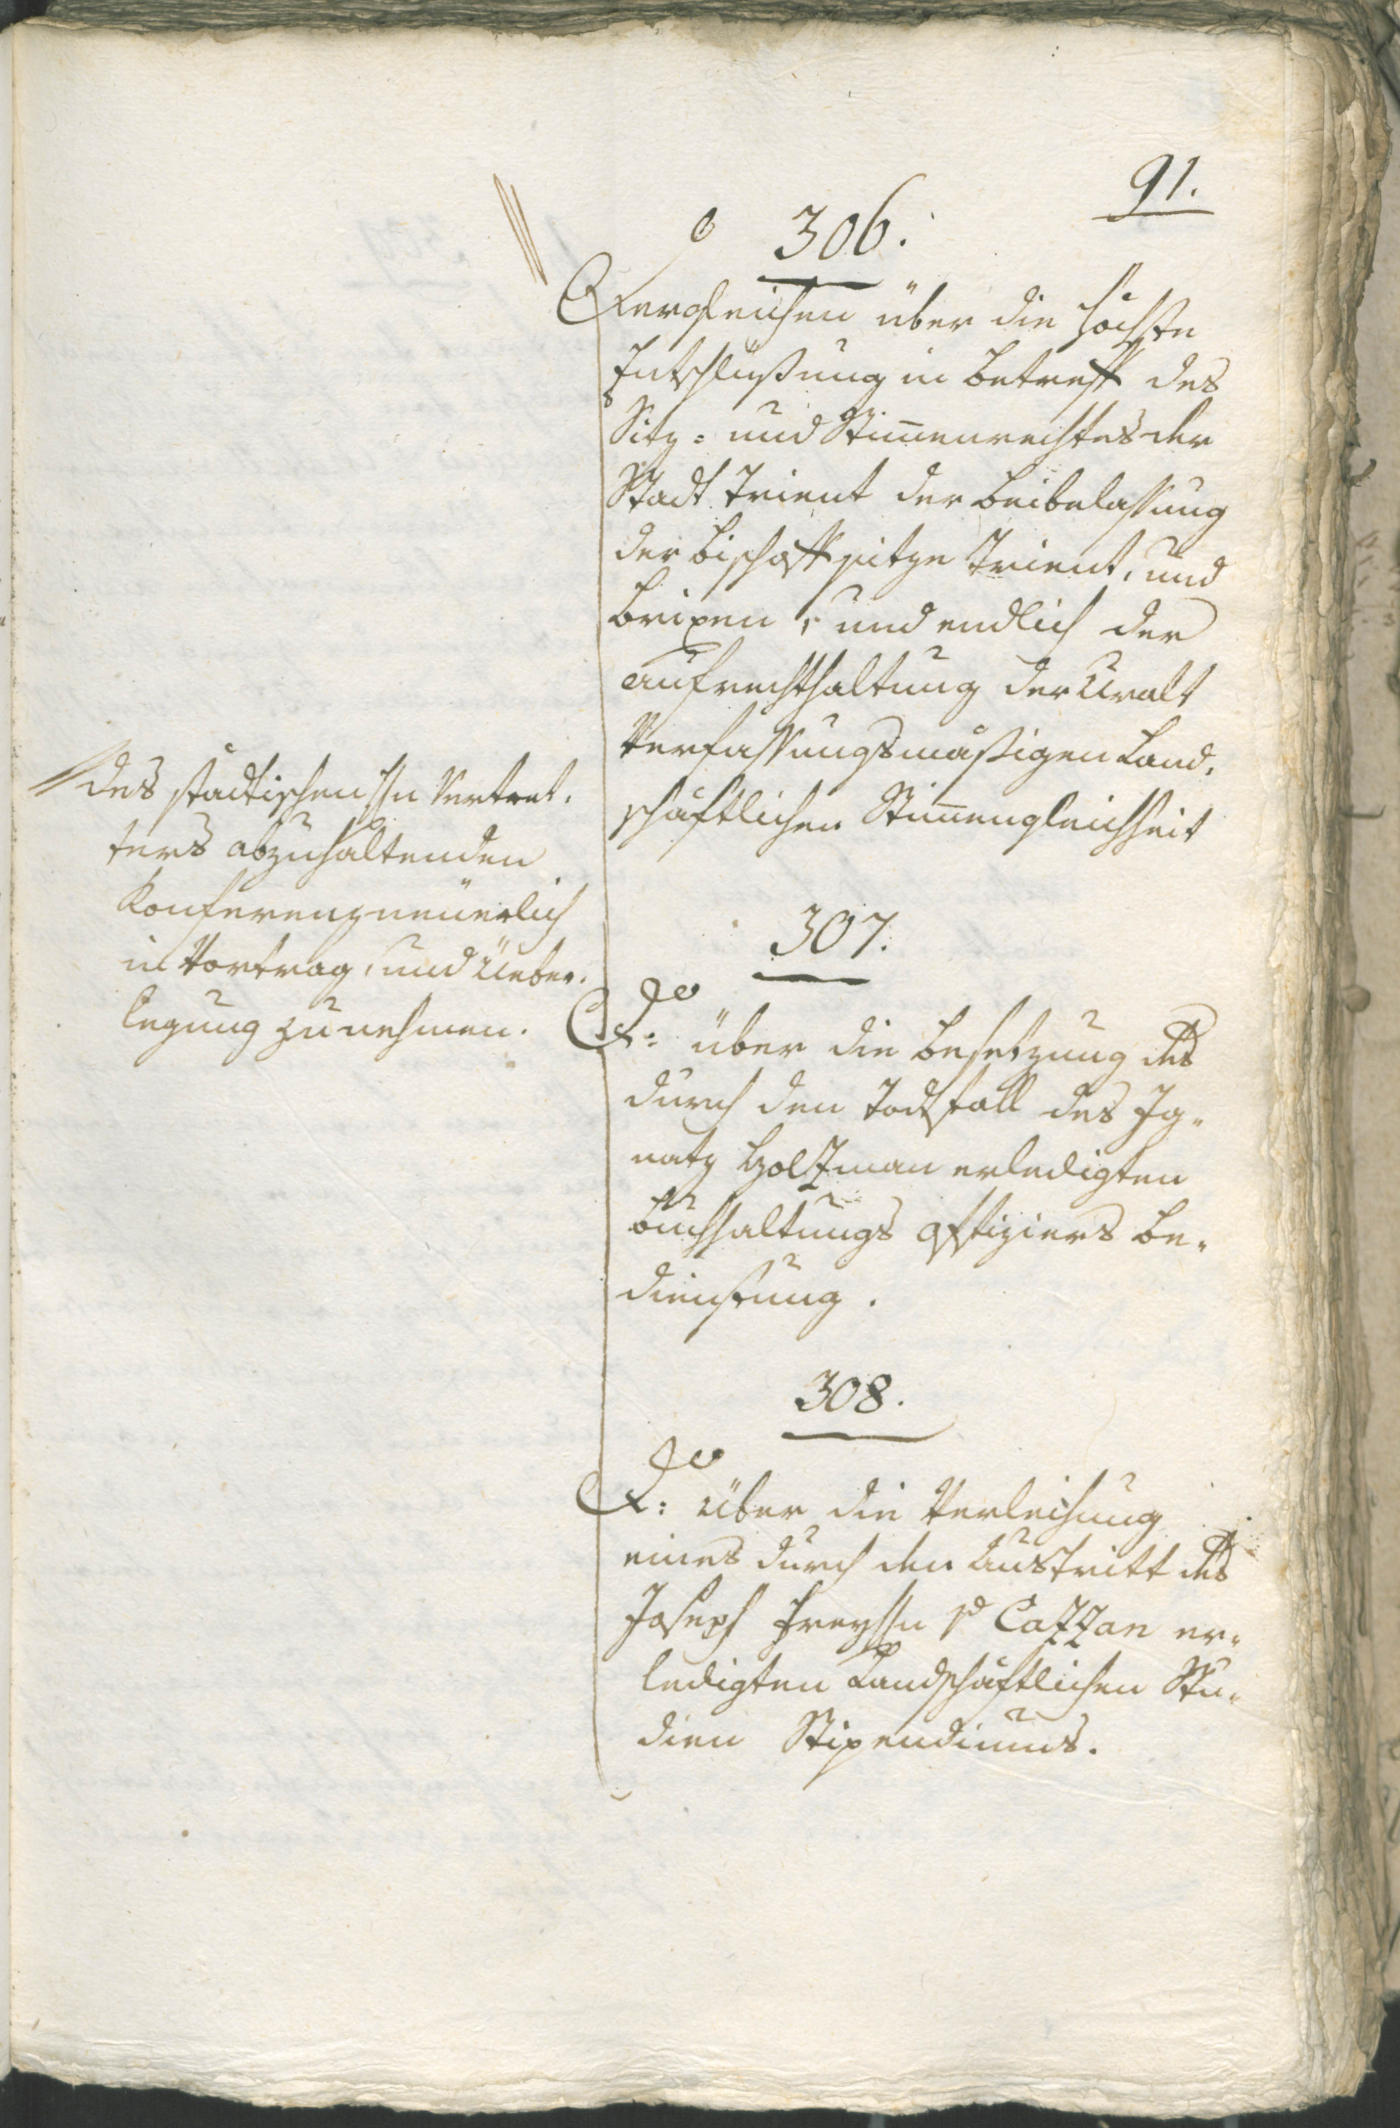 91.
306.
Dergleichen über die höchste
Entschlüßung in betreff des
Sitz= und Stim̅enrechtes der
Stadt Trient der beibelassung
der bischoffsitze Trient, und
brixen, und endlich der
aufrechthaltung der Uralt
Verfassungsmäßigen Land,
schäftlichen Stim̅engleichheit
des städtischen Hn Vertret.
ters abzuhaltenden
Konferenz neüerlich
in Vortrag, und Ueber.
legung zu nehmen.
307.
Do: über die besetzung des
durch den Todfall des Ig-
natz Holzman erledigten
buchhaltungs offiziers be-
dienstung.
308.
Do: über die Verleihung
eines durch den Austritt des
Joseph Freyhn v Cazzan er-
ledigten Landschäftlichen Stu-
dien Stipendiums.